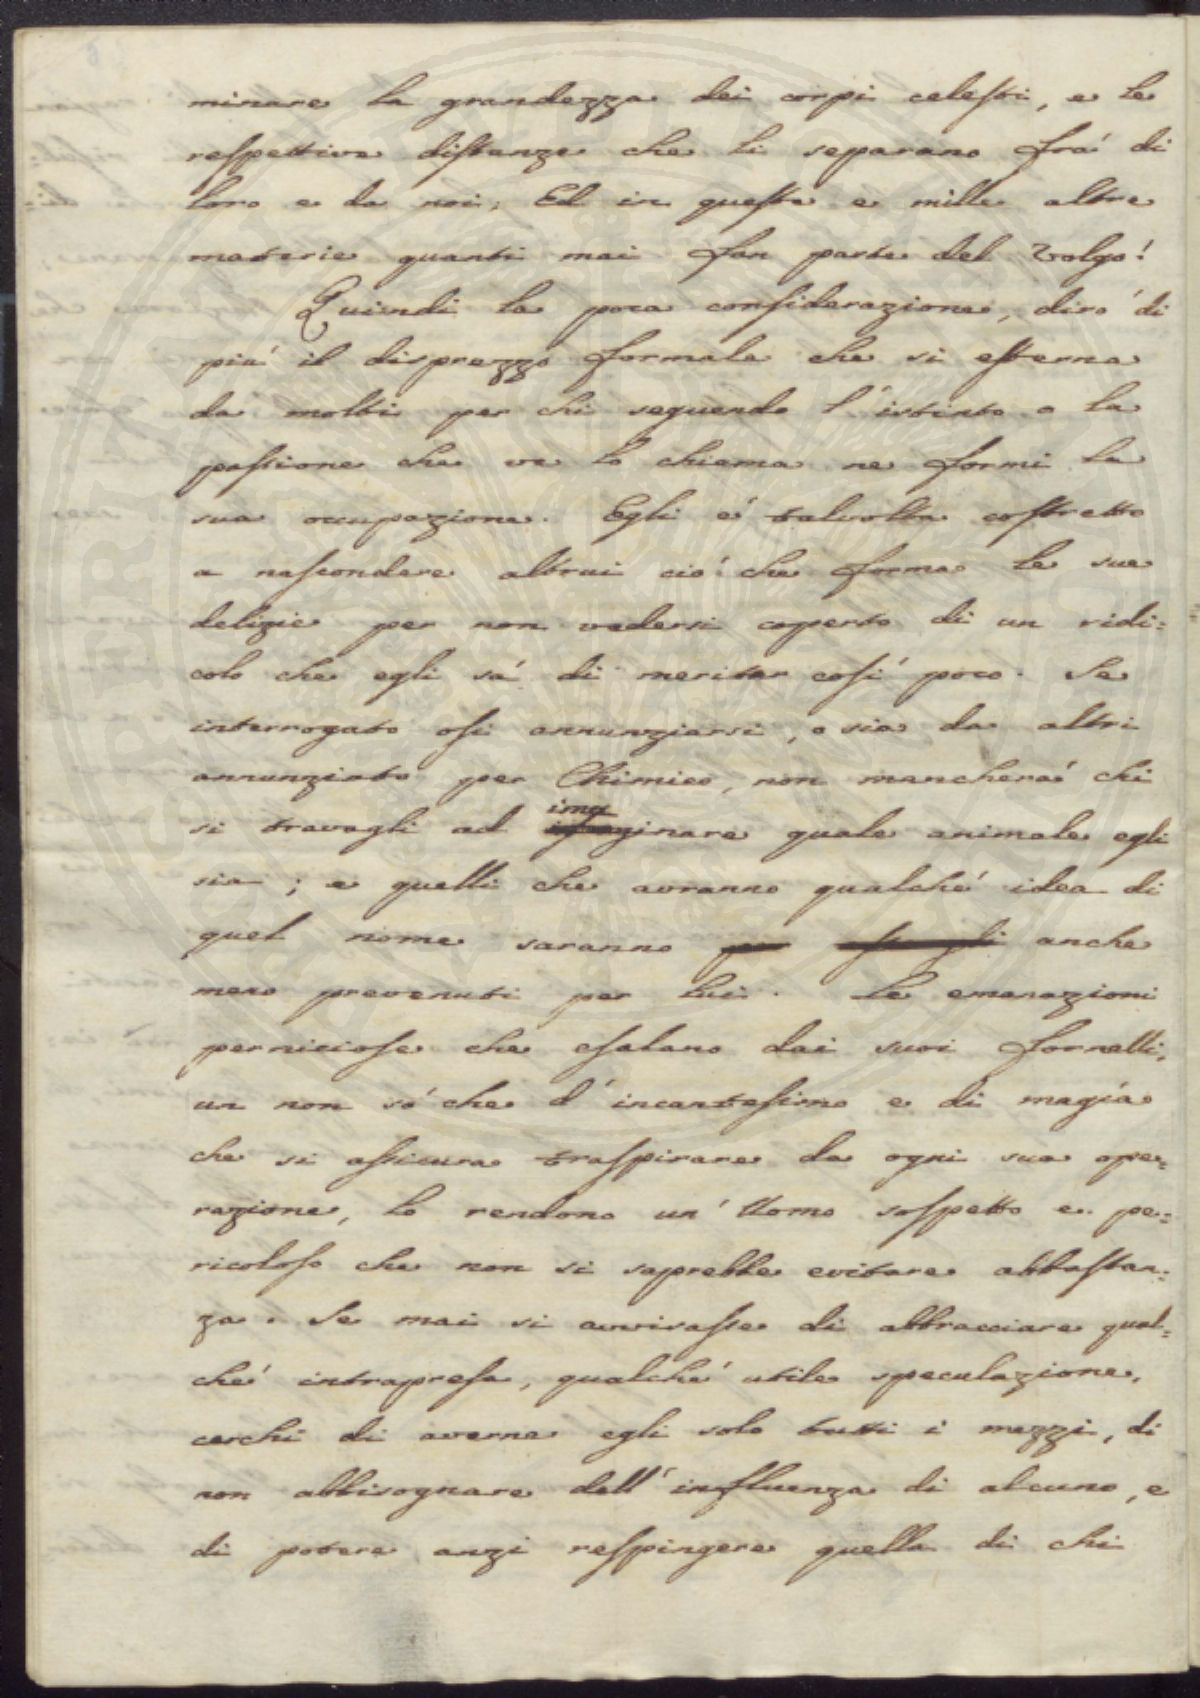 minare la grandezza dei corpi celesti, e le
respettive distanze che li separano frá di
loro e da noi; Ed in queste e mille altre
materie quanti mai fan parte del volgo!
Quindi la poca considerazione, diró di
piú il disprezzo formale che si esterna
da molti per chi seguendo l'istinto o la
passione che ve lo chiama ne formi la
sua occupazione. Egli é talvolta costretto
a nascondere altrui ció che forma le sue
delizie per non vedersi coperto di un ridi=
colo che egli sá di meritar cosí poco. Se
interrogato osi annunziarsi, o sia da altri
annunziato per Chimico, non mancherá chi
si travagli ad imaginare quale animale egli
sia; e quelli che avranno qualché idea di
quel nome saranno anche
meno prevenuti per lui. Le emanazioni
perniciose che esalano dai suoi fornelli,
un non só che d'incantesimo e di magía
che si assicura traspirare da ogni sua ope=
razione, lo rendono un'Uomo sospetto e pe=
ricoloso che non si saprebbe evitare abbastan=
za. Se mai si avvisasse di abbracciare qual=
ché intrapresa, qualché utile speculazione,
cerchi di averne egli solo tutti i mezzi, di
non abbisognare dell'influenza di alcuno, e
di potere anzi respingere quella di chi